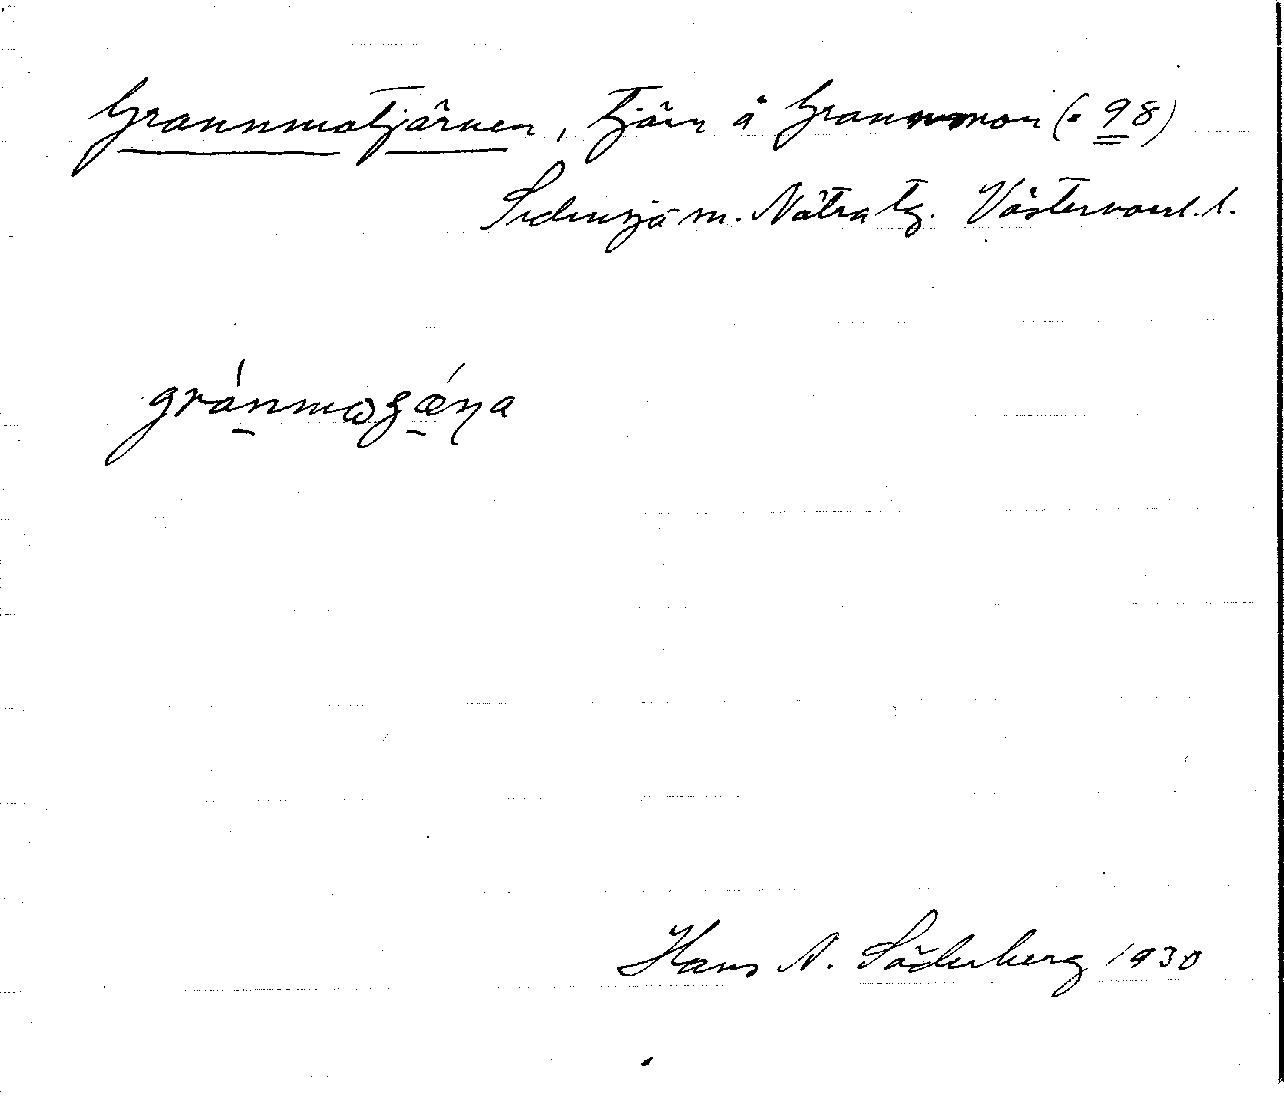 Grannmotjärnen, tjärn å Grannmon (• 98)
Sidensjö m. Nätra tg. Västernorrl. l.
gránmωʒǽɳa
Hans N. Söderberg 1930